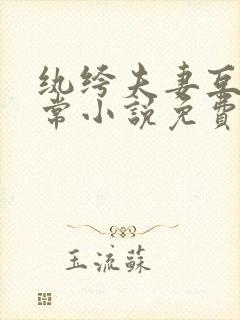 纨绔夫妻互
常小説免費
玉流蘇